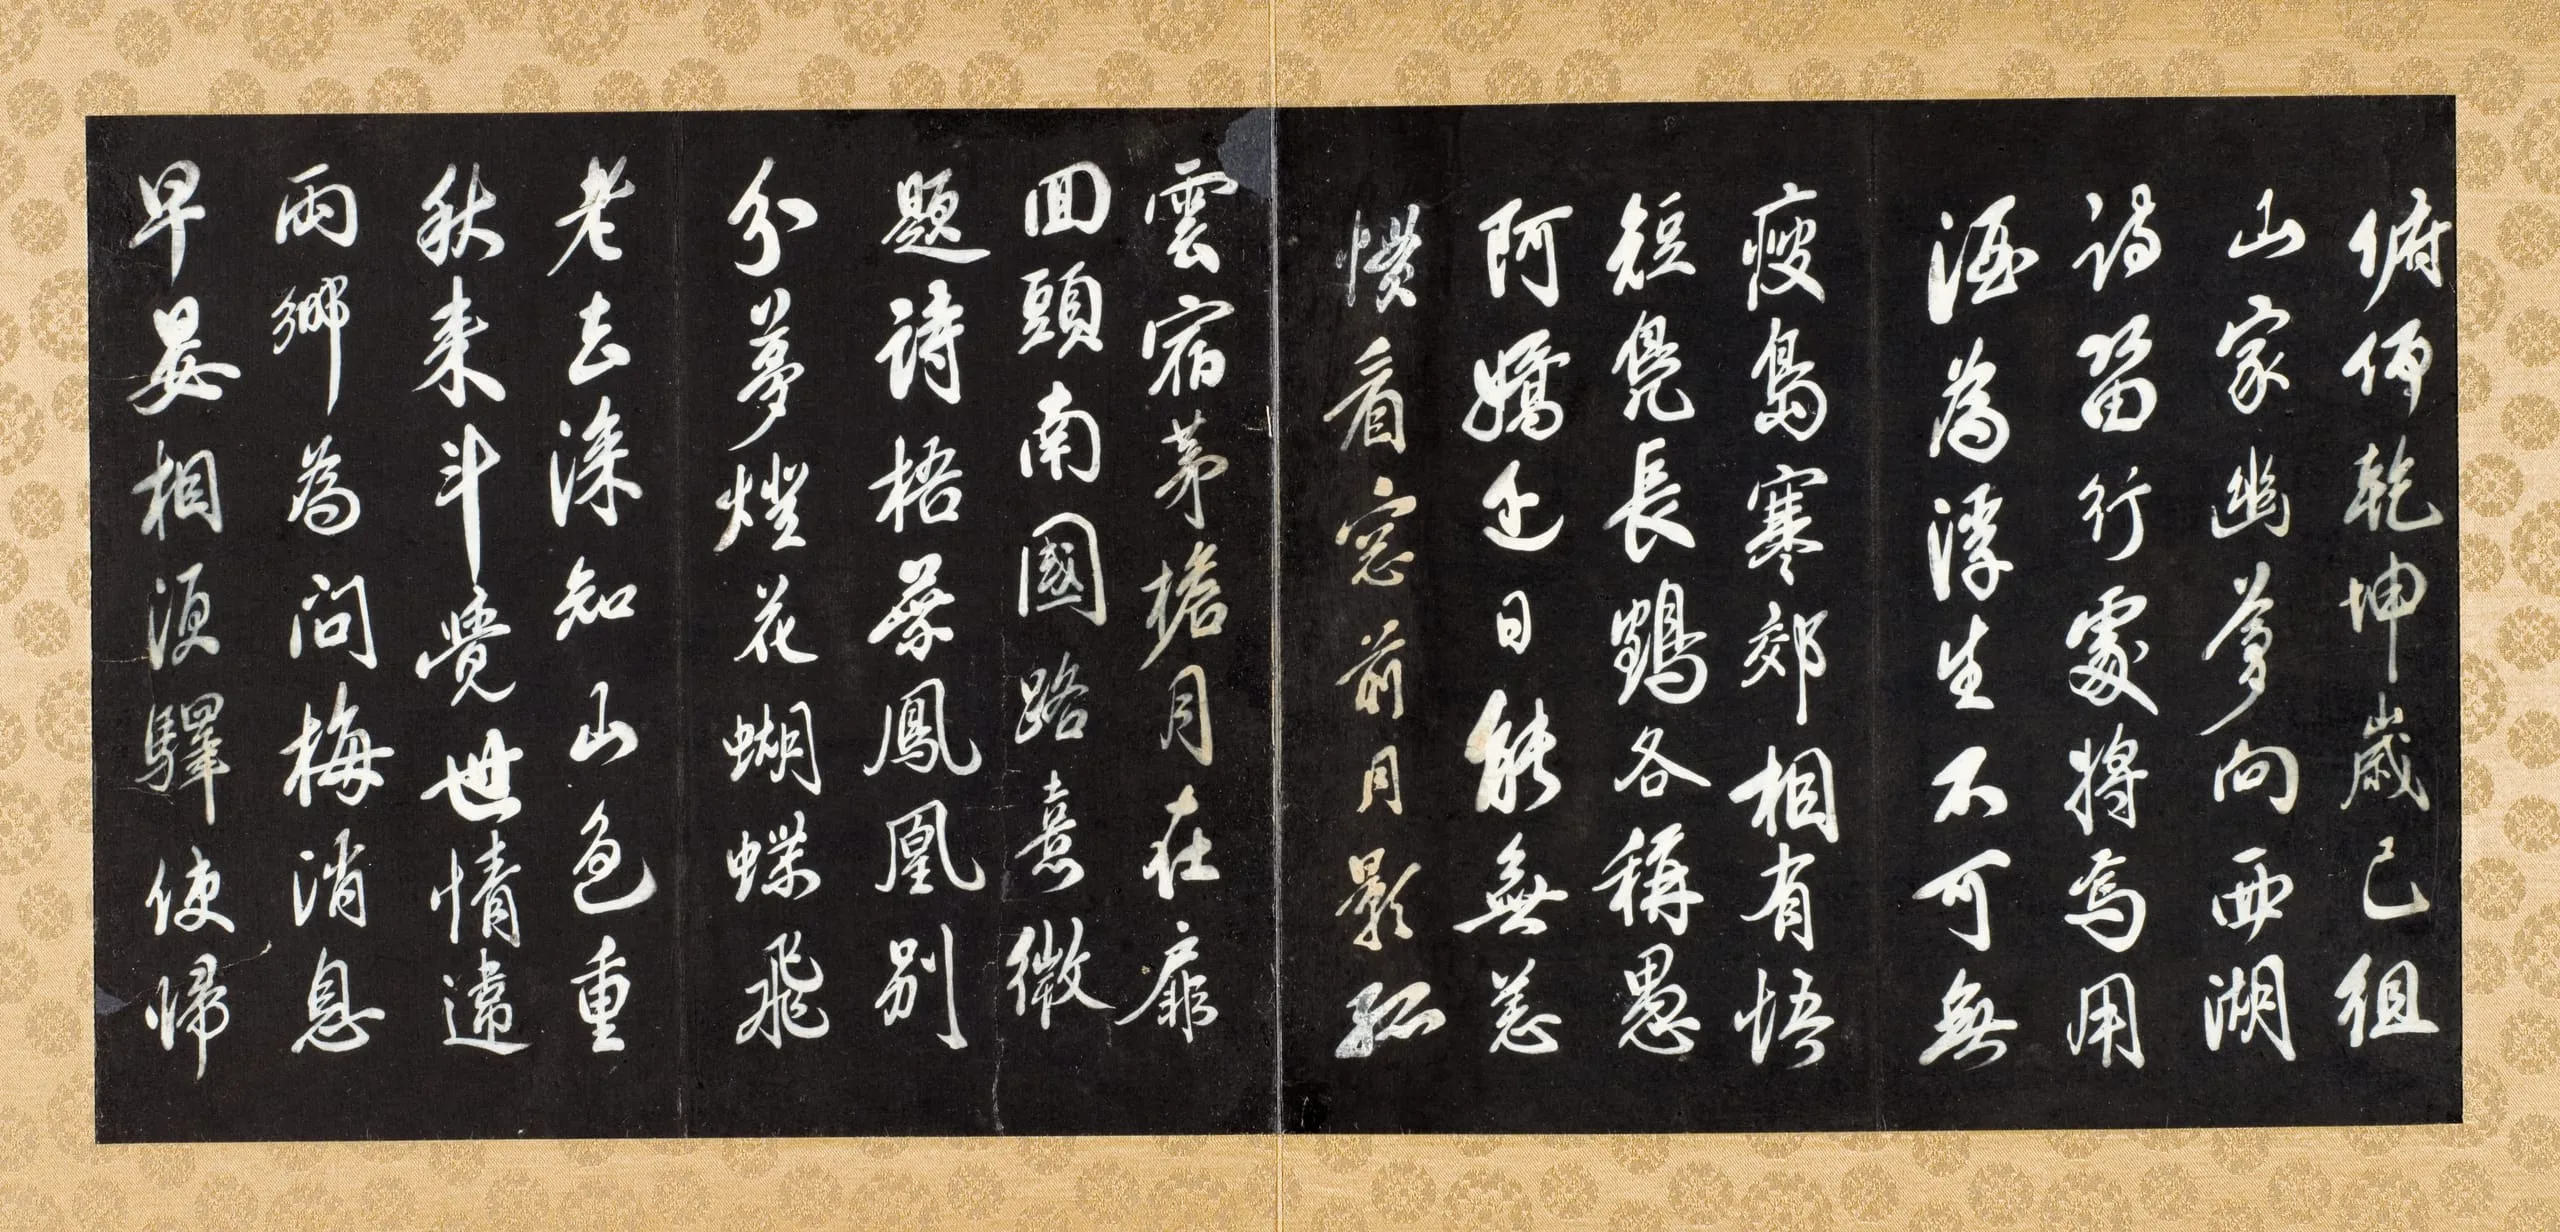 俯仰乾坤歲已徂
山家幽夢向西湖
詩留行處將焉用
酒為浮生不可無
瘦島寒郊相有悟
短鳧長鶴各稱愚
阿嬌近日能無恙
慣看窓前月影孤
雲宿茅檐月在扉
回頭南國路熹微
題詩梧葉鳳凰別
分夢燈花蝴蝶飛
老去深知山色重
秋来斗覺世情違
兩鄉為問梅消息
早晏相須驛使歸